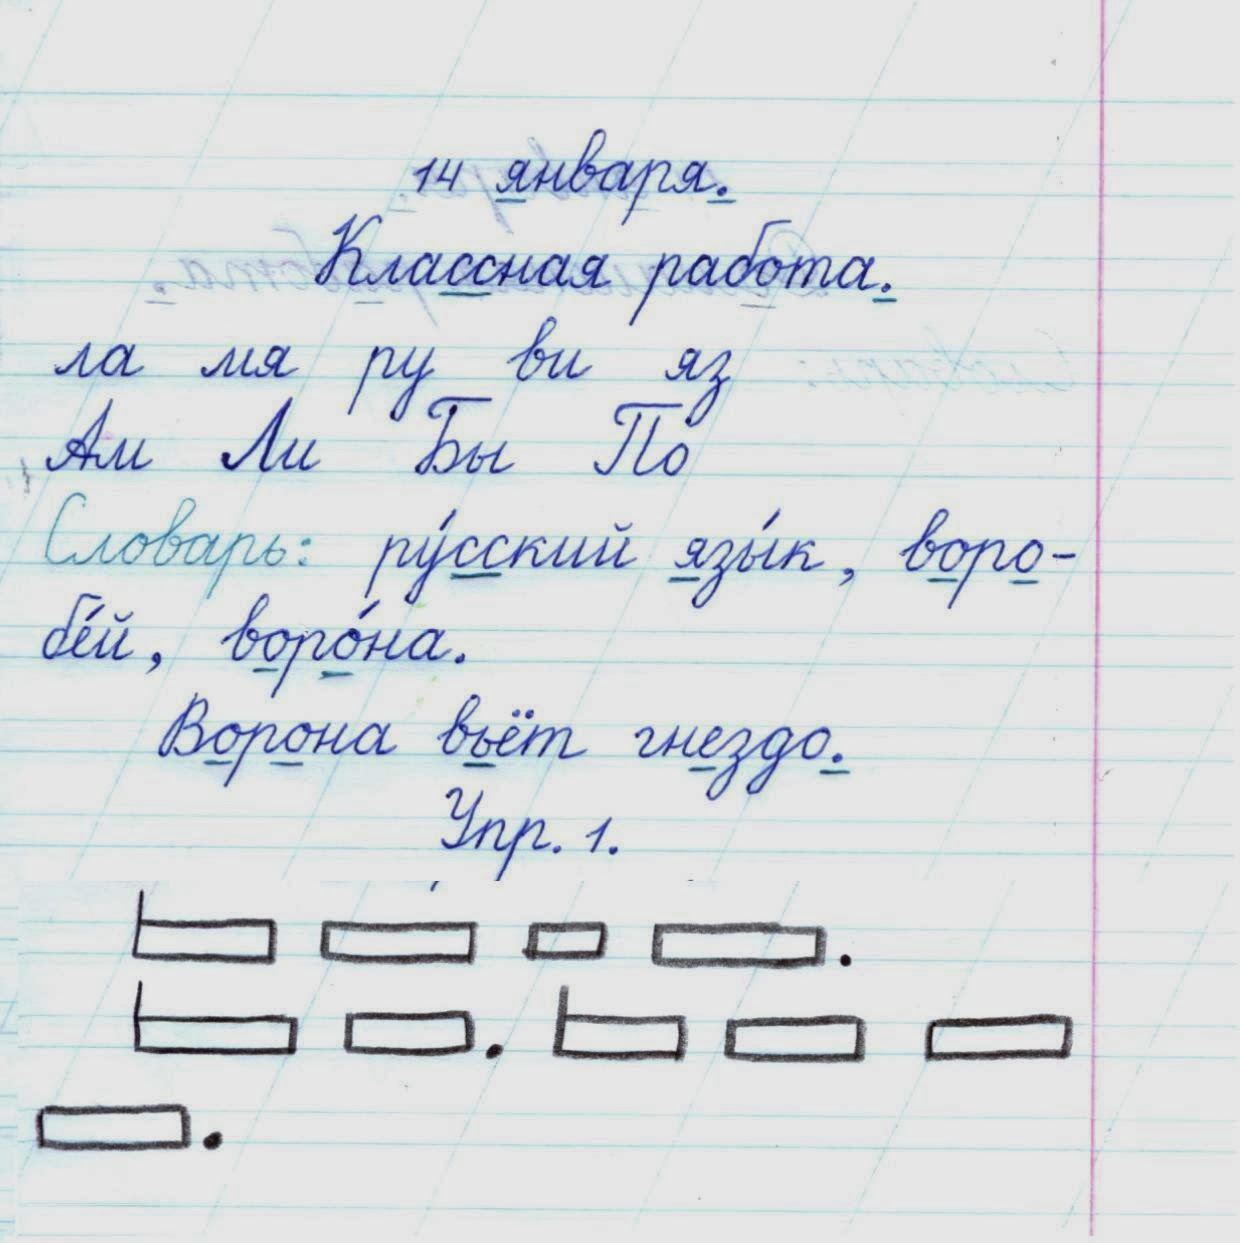 14 января.
Классная работа.
ла мя ру ви яз
Ам Ли Бы По
Словарь: ру́сский язы́к, воро-
бе́й, воро́на.
Ворона вьёт гнездо.
Упр. 1.